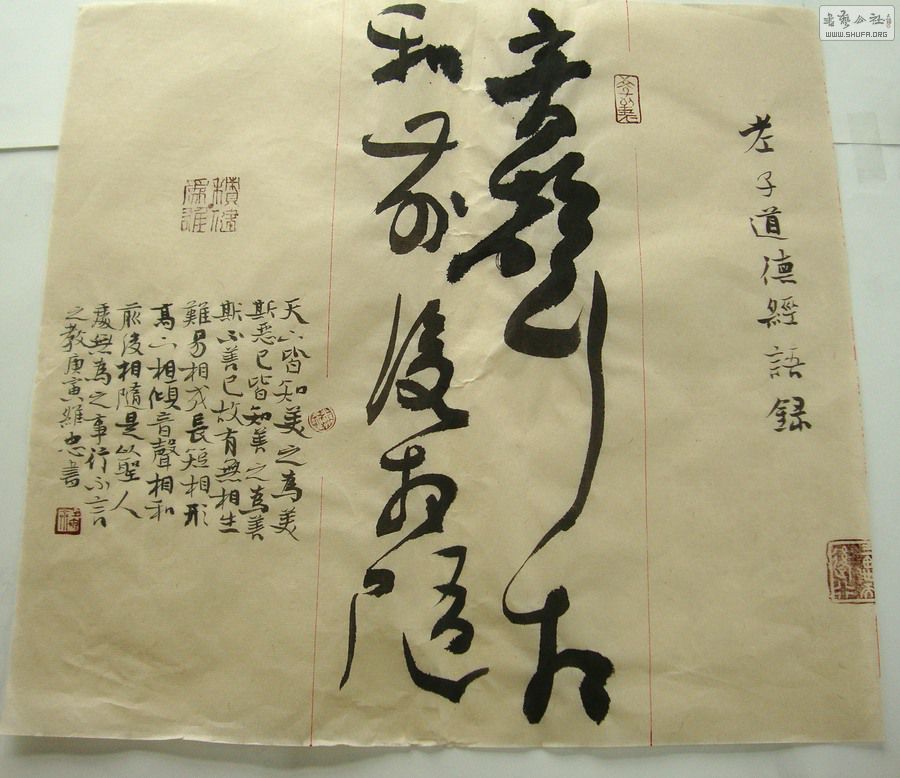 書藝公社
WWW.SHUFA.ORG
老子道德經語録
音聲相
和前後相隨
天下皆知美之為美
斯惡已皆知美之為善
斯不善已故有無相生
難易相成長短相形
高下相傾音聲相和
前後相隨是以聖人
處無為之事行不言
之教庚寅維忠書